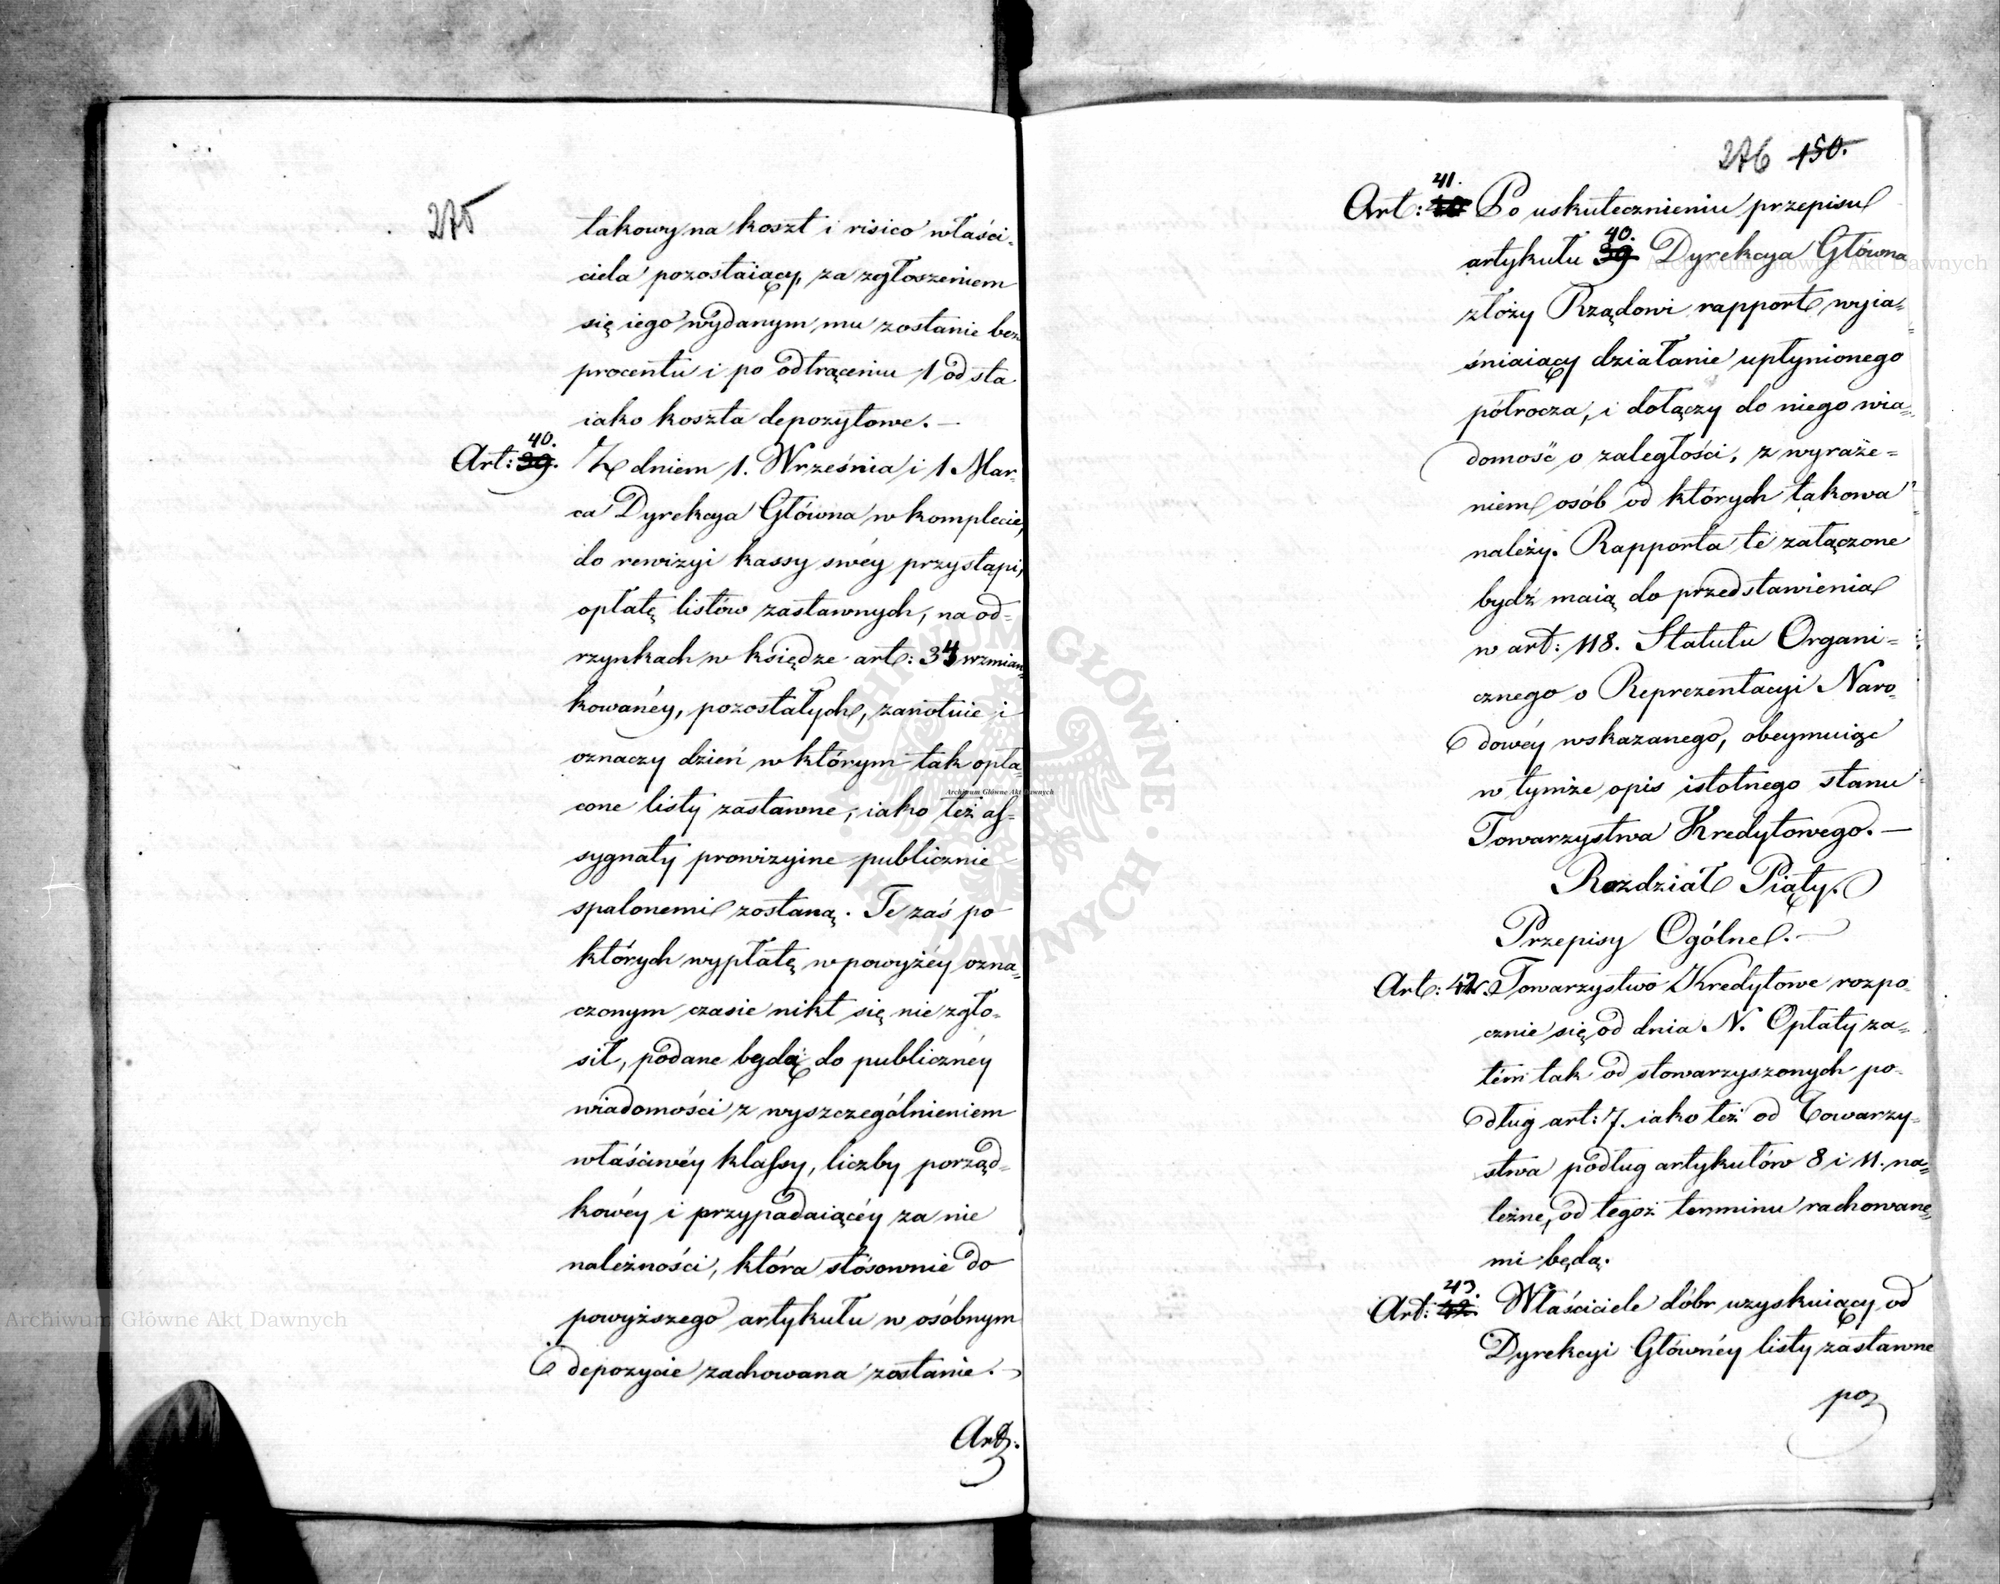 275
takowy na koszt i risico właści-
ciela pozostaiący, za zgłoszeniem
się iego wydanym mu zostanie bez
procentu i po odtrąceniu 1 od sta
iako koszta depozytowe. —
40.
Art: 39. Z dniem 1. Września i 1 Mar-
ca Dyrekcya Główna w komplecie,
do rewizyi kassy swéy przystąpi,
opłatę listów zastawnych, na od-
rzynkach w księdze art: 34 wzmian
kowanéy, pozostałych, zanotuie i
oznaczy dzień w którym tak opła-
cone listy zastawne, iako też as-
sygnaty prowizyine publicznie
spalonemi zostaną. Te zaś po
których wypłatę w powyżéy ozna-
czonym czasie nikt się nie zgło-
sił, podane będą do publicznéy
wiadomości z wyszczególnieniem
właściwéy klassy, liczby porząd-
kowéy i przypadaiącéy za nie
należności, która stósownie do
powyższego artykułu w osóbnym
depozycie zachowana zostanie. —
Art.
276 150.
41.
Art: 40 Po uskutecznieniu przepisu
40.
artykułu 39 Dyrekcya Główna
złoży Rządowi rapport wyia-
śniaiący działanie upłynionego
półrocza, i dołączy do niego wia-
domość o zaległości, z wyraże-
niem osób od których takowa
należy. Rapporta te załączone
bydź maią do przedstawienia
w art: 118. Statutu Organi-
cznego o Reprezentacyi Naro-
dowéy wskazanego, obeymuiąc
w tymże opis istotnego stanu
Towarzystwa Kredytowego. —
Rozdział Piąty.
Przepisy Ogólne. —
Art: 42. Towarzystwo Kredytowe rozpo-
cznie się od dnia N. Opłaty za-
tém tak od stowarzyszonych po-
dług art: 7. iako też od Towarzy-
stwa podług artykułów 8 i 11. na-
leżne, od tegoż terminu rachowane-
mi będą.
43.
Art: 42. Właściciele dóbr uzyskuiący od
Dyrekcyi Głównéy listy zastawne
po
Archiwum Główne Akt Dawnych
Archiwum Główne Akt Dawnych
Archiwum Główne Akt Dawnych
ARCHIWUM GŁÓWNE AKT DAWNYCH